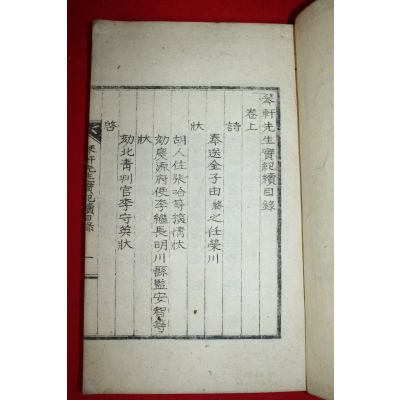 琴軒先生實紀續目錄
卷上
詩
奉送金子由之任榮川
狀
胡人住張哈等接情狀
劾慶源府使李繼長明川縣監安智等
狀
劾北靑判官李守英狀
啓
琴軒先生實紀續目錄 一